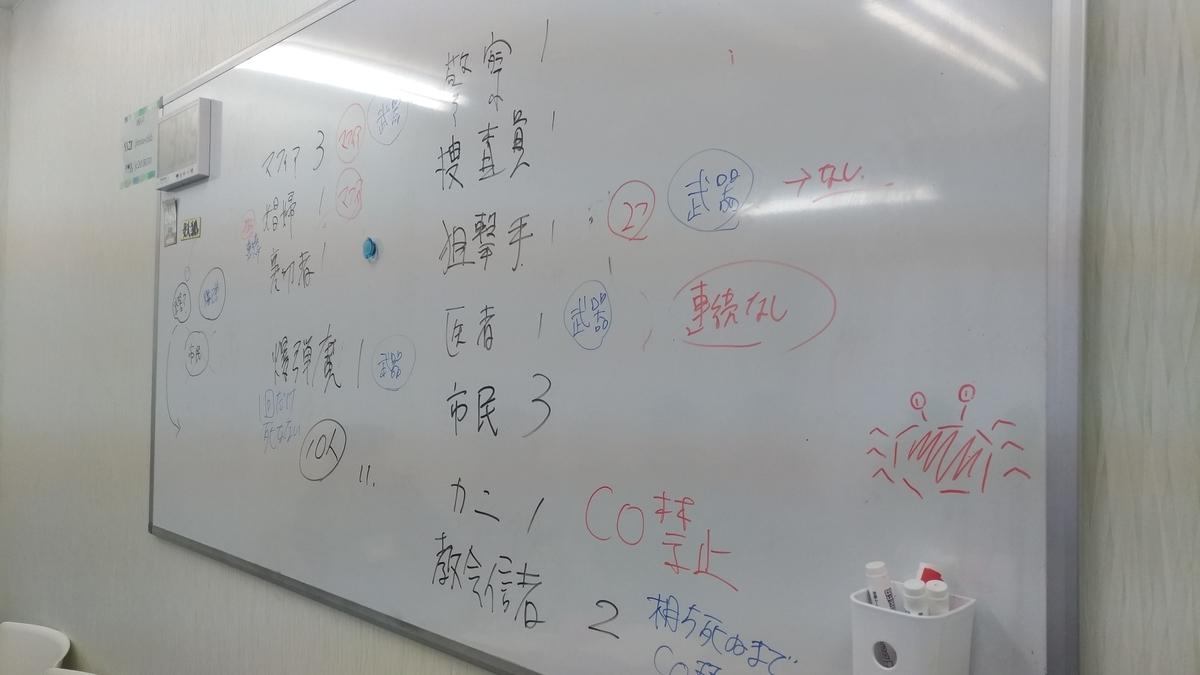 マフィア 3 マフィア 武器
娼婦 1 マフィア
裏切者 1
市民
爆弾魔 1 武器
1回だけ
死なない
10人
11.
警察 1
捜査員 1
狙撃手 1 武器 →なし
医者 1 武器 連続なし
市民 3
カニ 1 CO禁止
教会信者 2 相方死ぬまで